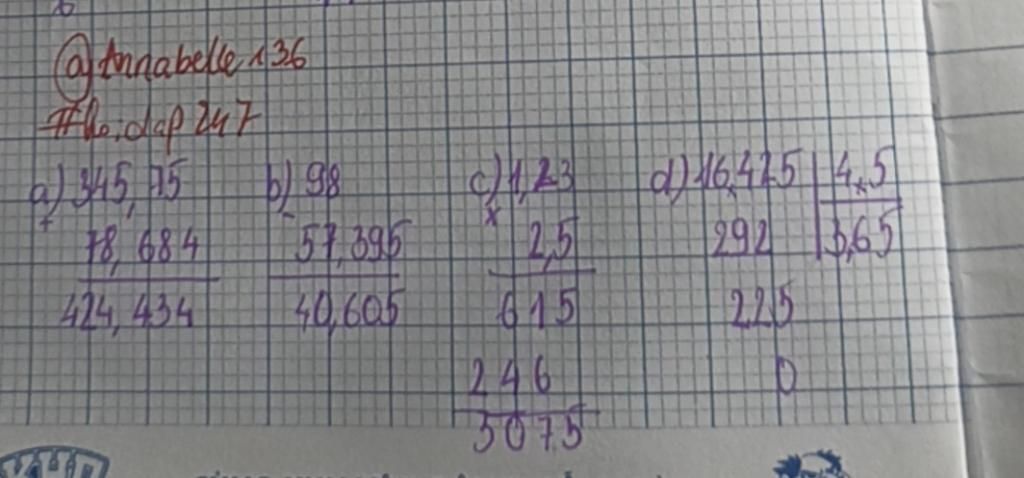 @Annabelle 136
a) 345,75
+
78,684
424,434
b) 98
-
57,395
40,605
c) 1,23
x
2,5
615
246
3075
d) 16,425 4,5
292 3,65
225
0